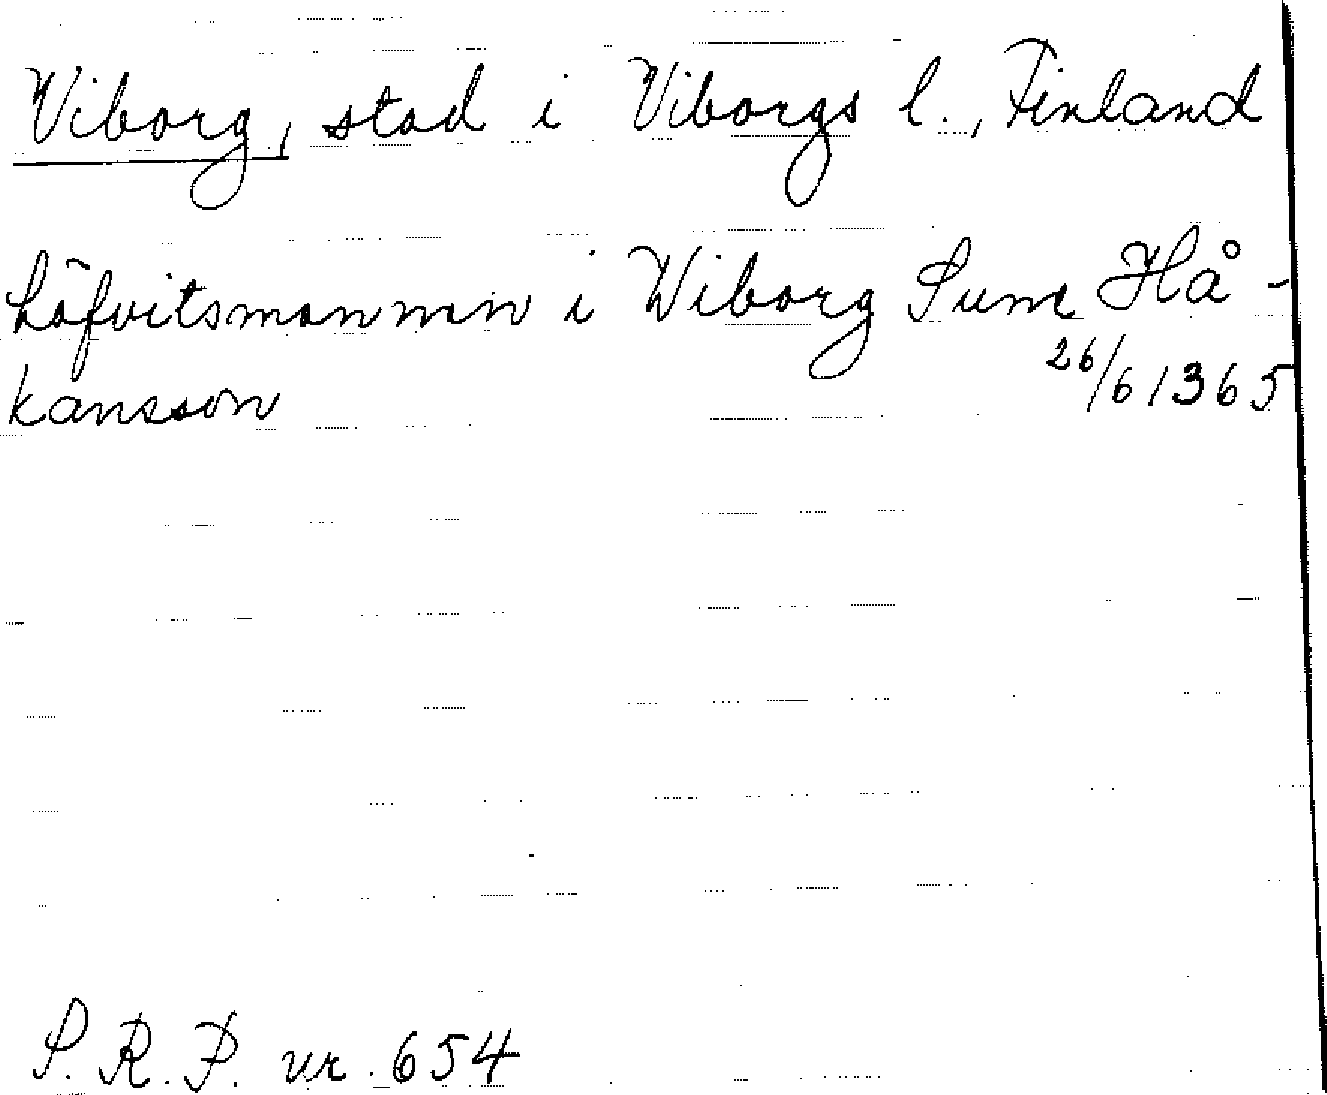 Viborg, stad i Viborgs l., Finland
höfvitsmannen i Wiborg Sune Hå-
kansson 26/6 1365
S. R. P. nr. 654